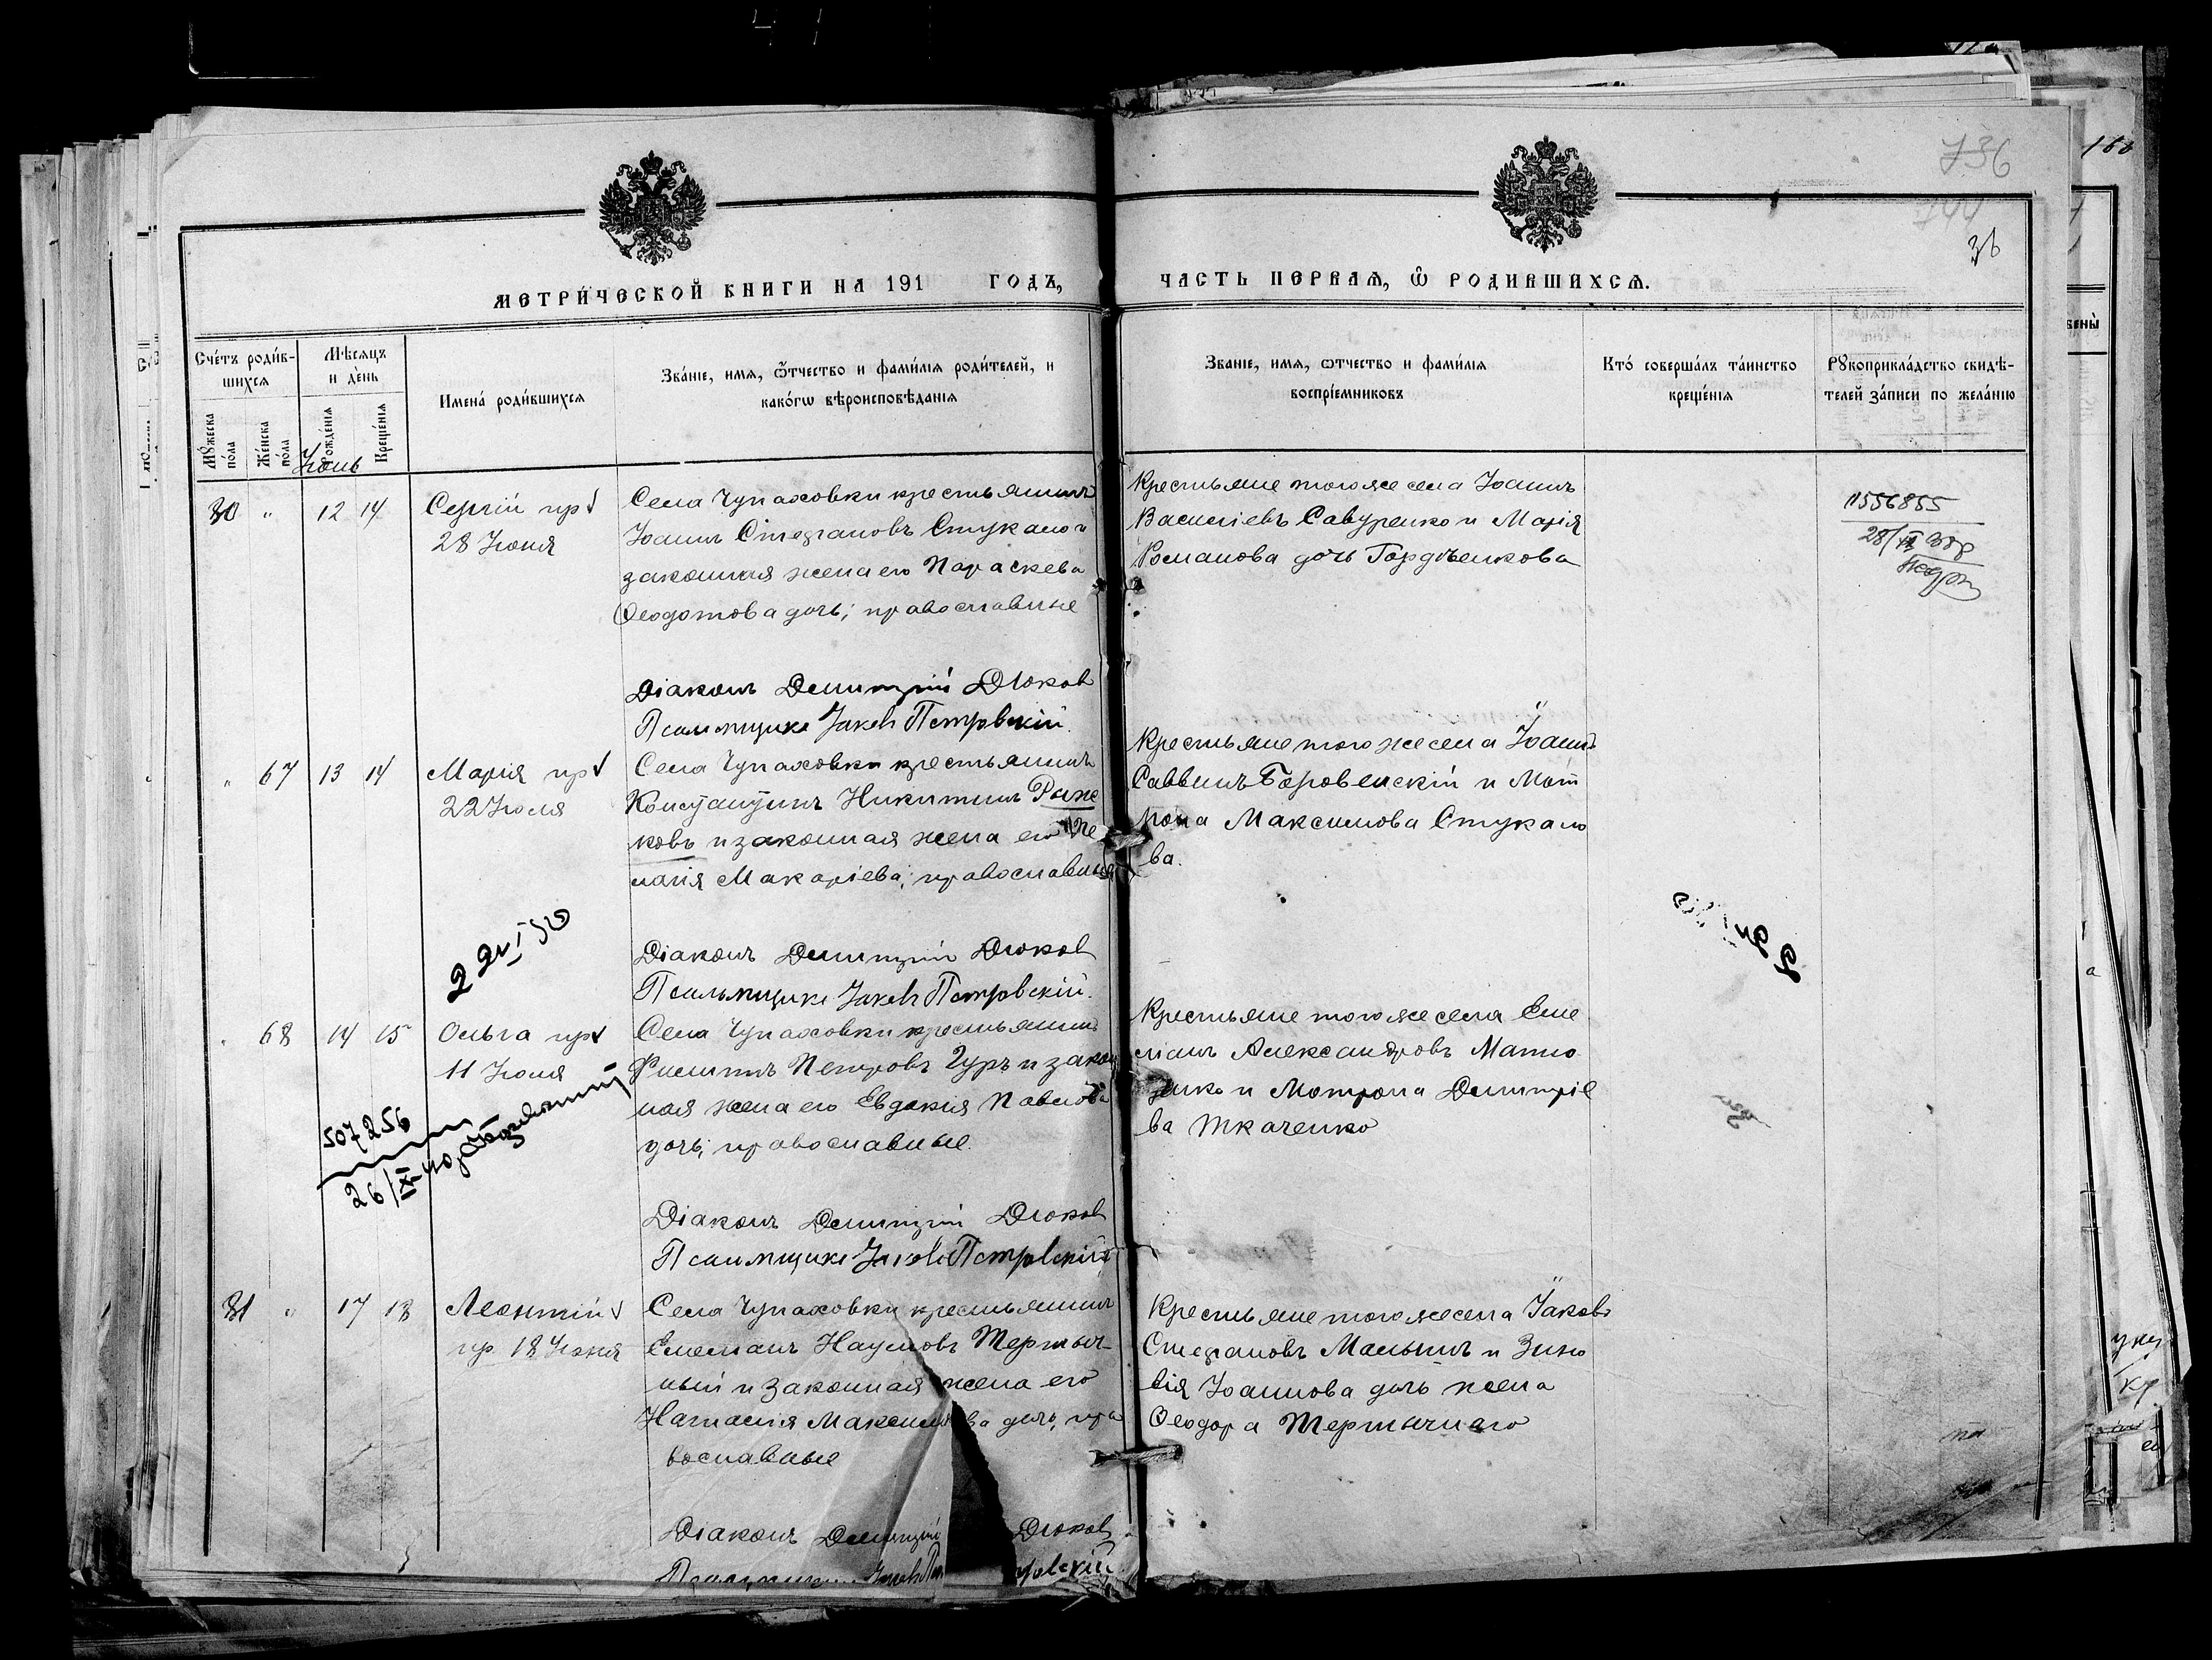 736
144
36
МЕТРИ́ЧЕСКОЙ КНИГИ НА 191 ГОДЪ,
ЧАСТЬ ПЕРВАѦ, Ѡ РОДИВШИХСѦ.
Сче́тъ роди́в-
шихсѧ
Мꙋ́жеска по́ла
Же́нска по́ла
Мѣ́сѧцъ
и де́нь
Рожде́нїѧ
Креще́нїѧ
Имена́ роди́вшихсѧ
Зва́нїе, имѧ, ѻ҆́тчество и фами́лїѧ роди́телей, и
како́гѡ вѣроисповѣ́данїѧ
Зва́нїе, имѧ, ѡтчество и фами́лїѧ
воспрїе́мниковъ
Кто́ соверша́лъ та́инство
креще́нїѧ
Рꙋкоприкла́дство свидѣ́-
телей за́писи по жела́нїю
Іюнь
30 " 12 14 Сергій пр
28 Іюня
Села Чупаховки крестьянинъ
Іоаннъ Стефановъ Стукало и
законная жена его Параскева
Ѳеодотова дочь; православные
Крестьяне того же села Іоаннъ
Василіевъ Савуренко и Марія
Романова дочь Гордѣенкова
1556855
Діаконъ Димитрій Дюков
Псаломщикъ Іаковъ Петровскій.
" 67 13 14 Марія пр
22 Іюля
Села Чупаховки крестьянинъ
Константинъ Никитинъ Рыж
ковъ и законная жена его Ме
ланія Макаріева; православные
Крестьяне того же села Іоаннъ
Саввинъ Боровенскій и Мат
рона Максимова Стукало
ва.
Діаконъ Димитрій Дюков
Псаломщикъ Іаковъ Петровскій.
" 68 14 15 Ольга пр
11 Іюля
Села Чупаховки крестьянинъ
Филиппъ Петровъ Гуръ и закон
ная жена его Евдокія Павлова
дочь; православные.
Крестьяне того же села Еме
ліанъ Александровъ Матю
шенко и Мотрона Димитріе
ва Ткаченко
507256
26/IX 40
Діаконъ Димитрій Дюков
Псаломщикъ Іаковъ Петровскій
31 " 17 18 Леонтій
пр. 18 Іюня
Села Чупаховки крестьянинъ
Емеліанъ Наумовъ Тертыч-
ный и законная жена его
Наталія Максимова дочь, пра
вославные
Крестьяне того же села Іаковъ
Стефановъ Малышъ и Зино
вія Іоаннова дочь жена
Ѳеодора Тертычнаго
Діаконъ Димитрій Дюков
Псаломщикъ Іаковъ Петровскій.